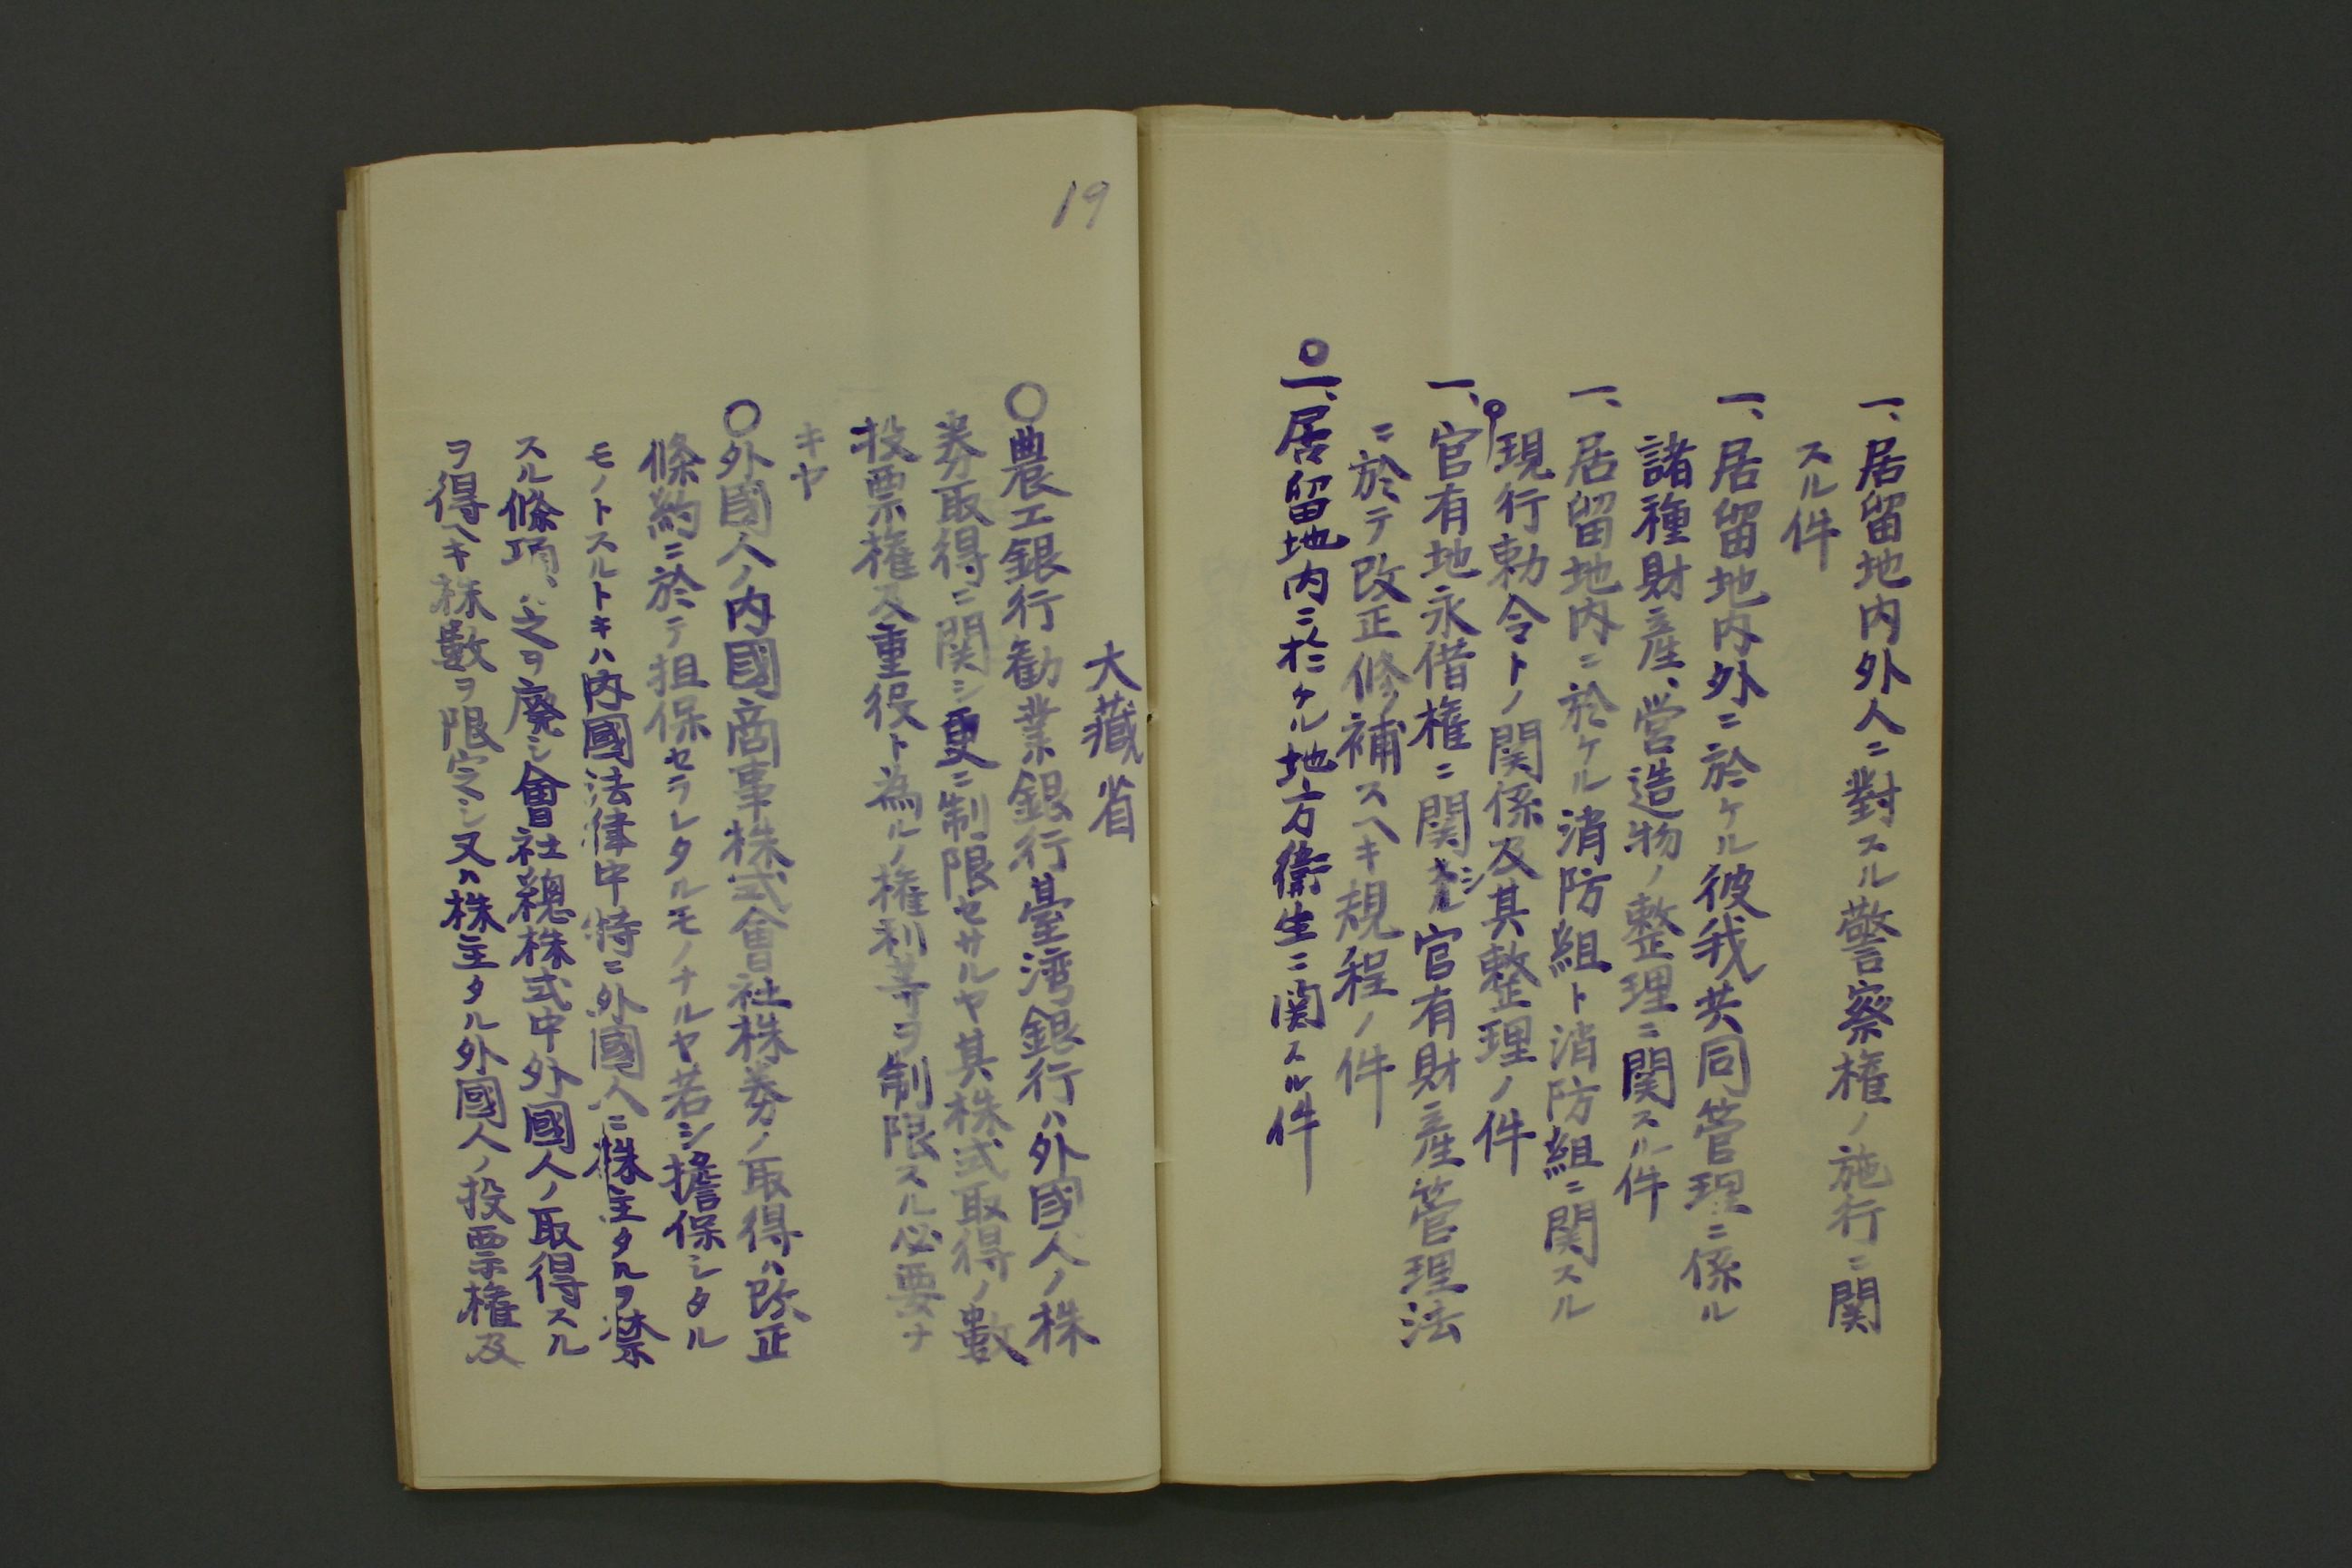 一、居留地内外人ニ對スル警察権ノ施行ニ関
スル件
一、居留地内外ニ於ケル彼我共同管理ニ係ル
諸種財産、営造物ノ整理ニ関スル件
一、居留地内ニ於ケル消防組ト消防組ニ関スル
現行勅令トノ関係及其整理ノ件
一、官有地永借権ニ関シ官有財産管理法
ニ於テ改正修補スヘキ規程ノ件
〇一、居留地内ニ於ケル地方衞生ニ関スル件
19
大藏省
〇農工銀行勧業銀行臺湾銀行ハ外國人ノ株
券取得ニ関シ更ニ制限セサルヤ其株式取得ノ數
投票権及重役ト為ルノ権利等ヲ制限スル必要ナ
キヤ
〇外國人ノ内國商事株式會社株券ノ取得ハ改正
條約ニ於テ担保セラレタルモノナルヤ若シ擔保シタル
モノトスルトキハ内國法律中特ニ外國人ニ株主タルヲ禁
スル條項ハ之ヲ廢シ會社總株式中外國人ノ取得スル
ヲ得ヘキ株數ヲ限定シ又ハ株主タル外國人ノ投票権及